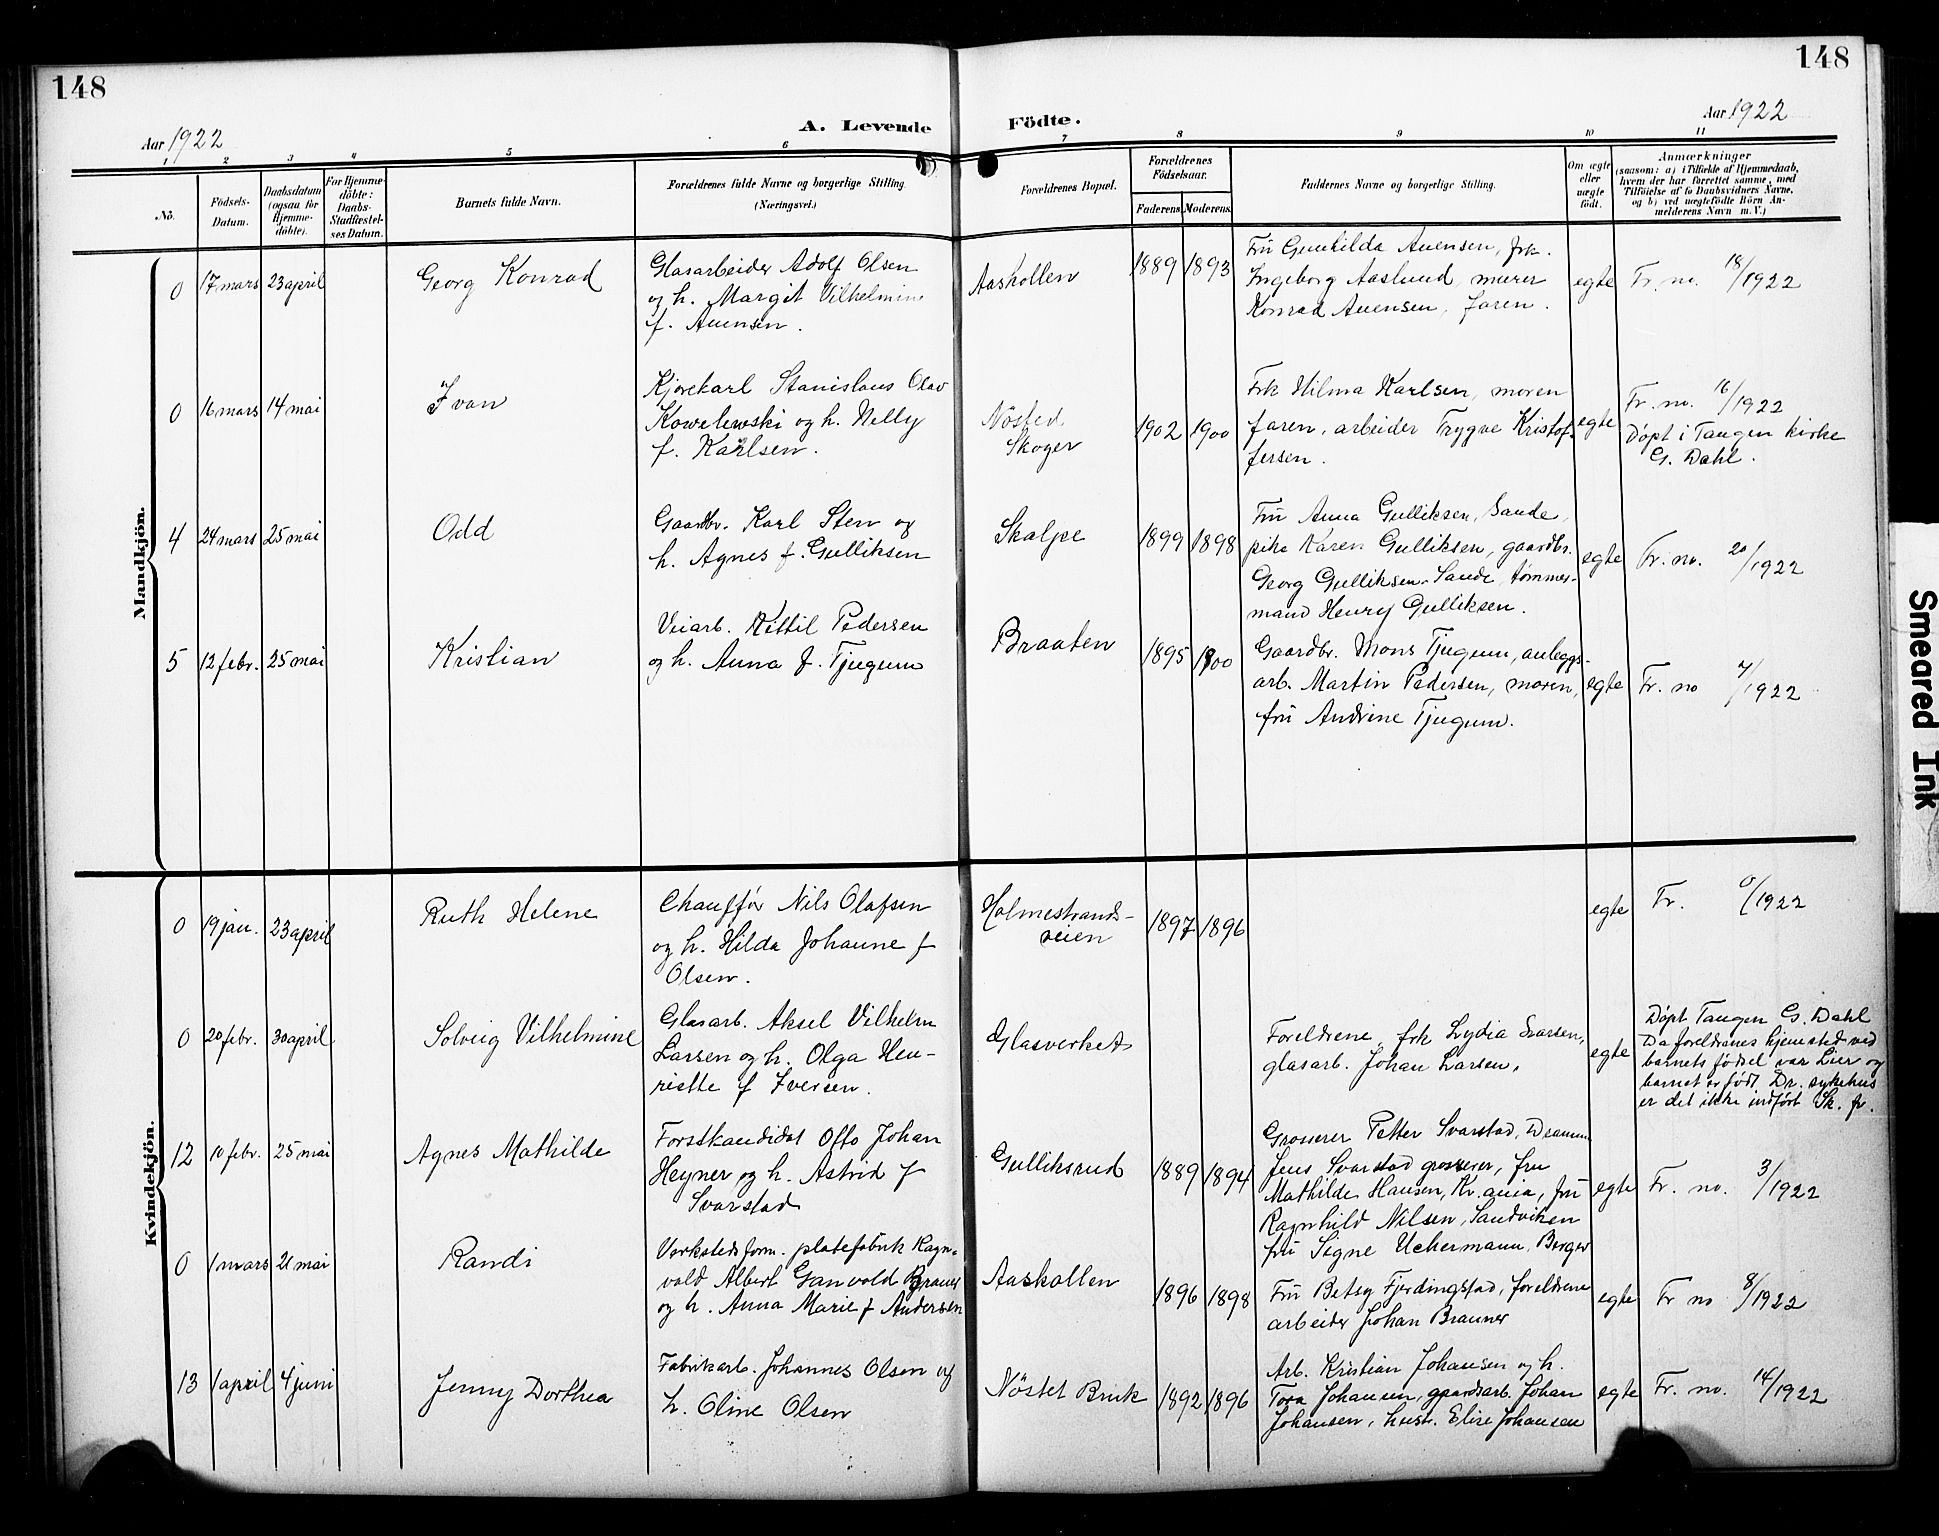 148
148
Aar 1922
A. Levende Födte.
Aar 1922
1 2 3 4 5 6 7 8 9 10 11
No.
Födsels-
Datum.
Daabsdatum
(ogsaa for
Hjemme-
döbte).
For Hjemme-
döbte:
Daabs-
Stadfæstel-
ses Datum.
Barnets fulde Navn.
Forældrenes fulde Navne og borgerlige Stilling.
(Næringsvei.)
Forældrenes Bopæl.
Forældrenes
Födselsaar.
Faderens. Moderens.
Faddernes Navne og borgerlige Stilling.
Om ægte
eller
uægte
födt.
Anmærkninger
(saasom: a) i Tilfælde af Hjemmedaab,
hvem der har forrettet samme, med
Tilföielse af to Daabsvidners Navne,
og b) ved uegtefödte Börn An-
melderens Navn m. V.)
Mandkjön.
0 17 mars 23 april
Georg Konrad
Glasarbeider Adolf Olsen
og h. Margit Vilhelmine
f. Auensen.
Aaskollen
1889 1893
Fru Gunhilda Auensen, frk.
Ingeborg Aaslund, murer
Konrad Auensen, faren.
egte
Fr. no. 18/1922
0 16 mars 14 mai
Ivan
Kjørekarl Stanislaus Olav
Kowelewski og h. Nelly
f. Karlsen.
Nøsted
Skoger
1902 1900
Frk Hilma Karlsen, moren
faren, arbeider Trygve Kristof-
fersen.
egte
Fr. no. 16/1922
Døpt i Tangen kirke
G. Dahl.
4 24 mars 25 mai
Odd
Gaardbr. Karl Sten og
h. Agnes f. Gulliksen
Skalpe
1899 1898
Fru Anna Gulliksen, Sande,
pike Karen Gulliksen, gaardbr.
Georg Gulliksen-Sande, tømmer-
mand Henry Gulliksen.
egte
Fr. no. 20/1922
5 12 febr. 25 mai
Kristian
Veiarb. Kittil Pedersen
og h. Anna f. Tjugum
Braaten
1895 1900
Gaardbr. Mons Tjugum, anleggs-
arb. Martin Pedersen, moren,
fru Andrine Tjugum.
egte
Fr. no 7/1922
Kvindekjön.
0 19 jan. 23 april
Ruth Helene
Chauffør Nils Olafsen
og h. Hilda Johanne f
Olsen.
Holmestrands-
veien
1897 1896
egte
Fr. 0/1922
0 20 febr. 30 april
Solveig Vilhelmine
Glasarb. Aksel Vilhelm
Larsen og h. Olga Hen-
riette f Iversen.
Glasverket
Foreldrene, frk Lydia Larsen,
glasarb. Johan Larsen.
egte
Døpt Tangen G. Dahl
Da foreldrenes hjemsted ved
barnets fødsel var Lier og
barnet er født Dr. sykehus
er det ikke indført Sk. fr.
12 10 febr. 25 mai
Agnes Mathilde
Forstkandidat Otto Johan
Heyner og h. Astrid f
Svarstad
Gulliksrud
1889 1894
Grosserer Petter Svarstad, Dramm
Jens Svarstad grosserer, fru
Mathilde Hansen, Kr.ania, fru
Ragnhild Nilsen, Sandviken
fru Signe Uchermann, Berger
egte
Fr. no. 3/1922
0 1 mars 21 mai
Randi
Verkstedsform. platefabrik Ragn-
vald Albert Brauer
og h. Anna Marie f Andersen
Aaskollen
1896 1898
Fru Betsy Fjerdingstad, foreldrene
arbeider Johan Brauner
egte
Fr no 8/1922
13 1 april 4 juni
Jenny Dorthea
Fabrikarb. Johannes Olsen og
h. Oline Olsen
Nöstet Bruk
1892 1896
Arb. Kristian Johansen og h.
Tora Johansen, gaardsarb. Johan
Johansen, hustr. Elise Johansen
egte
Fr. no. 14/1922
Smeared Ink